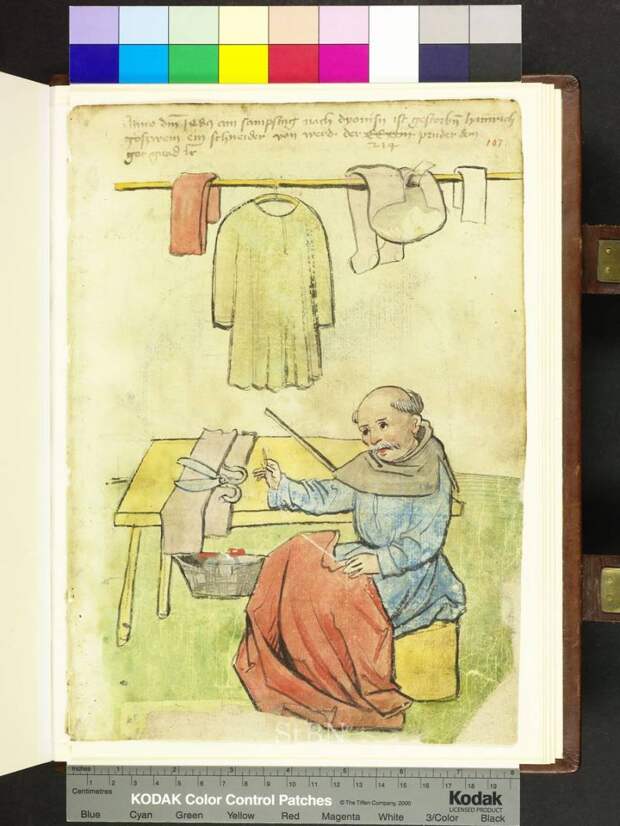 Anno dm 1489 am sampstag nach dyonisii ist gestorbn heinrich
goszwein ein schneider von werd der prüder dem
got gnad
214
107
StBN
inches 1 2 3 4 5 6 7 8
Centimetres 1 2 3 4 5 6 7 8 9 10 11 12 13 14 15 16 17 18 19
KODAK Color Control Patches © The Tiffen Company, 2000 Kodak
LICENSED PRODUCT
Blue Cyan Green Yellow Red Magenta White 3/Color Black